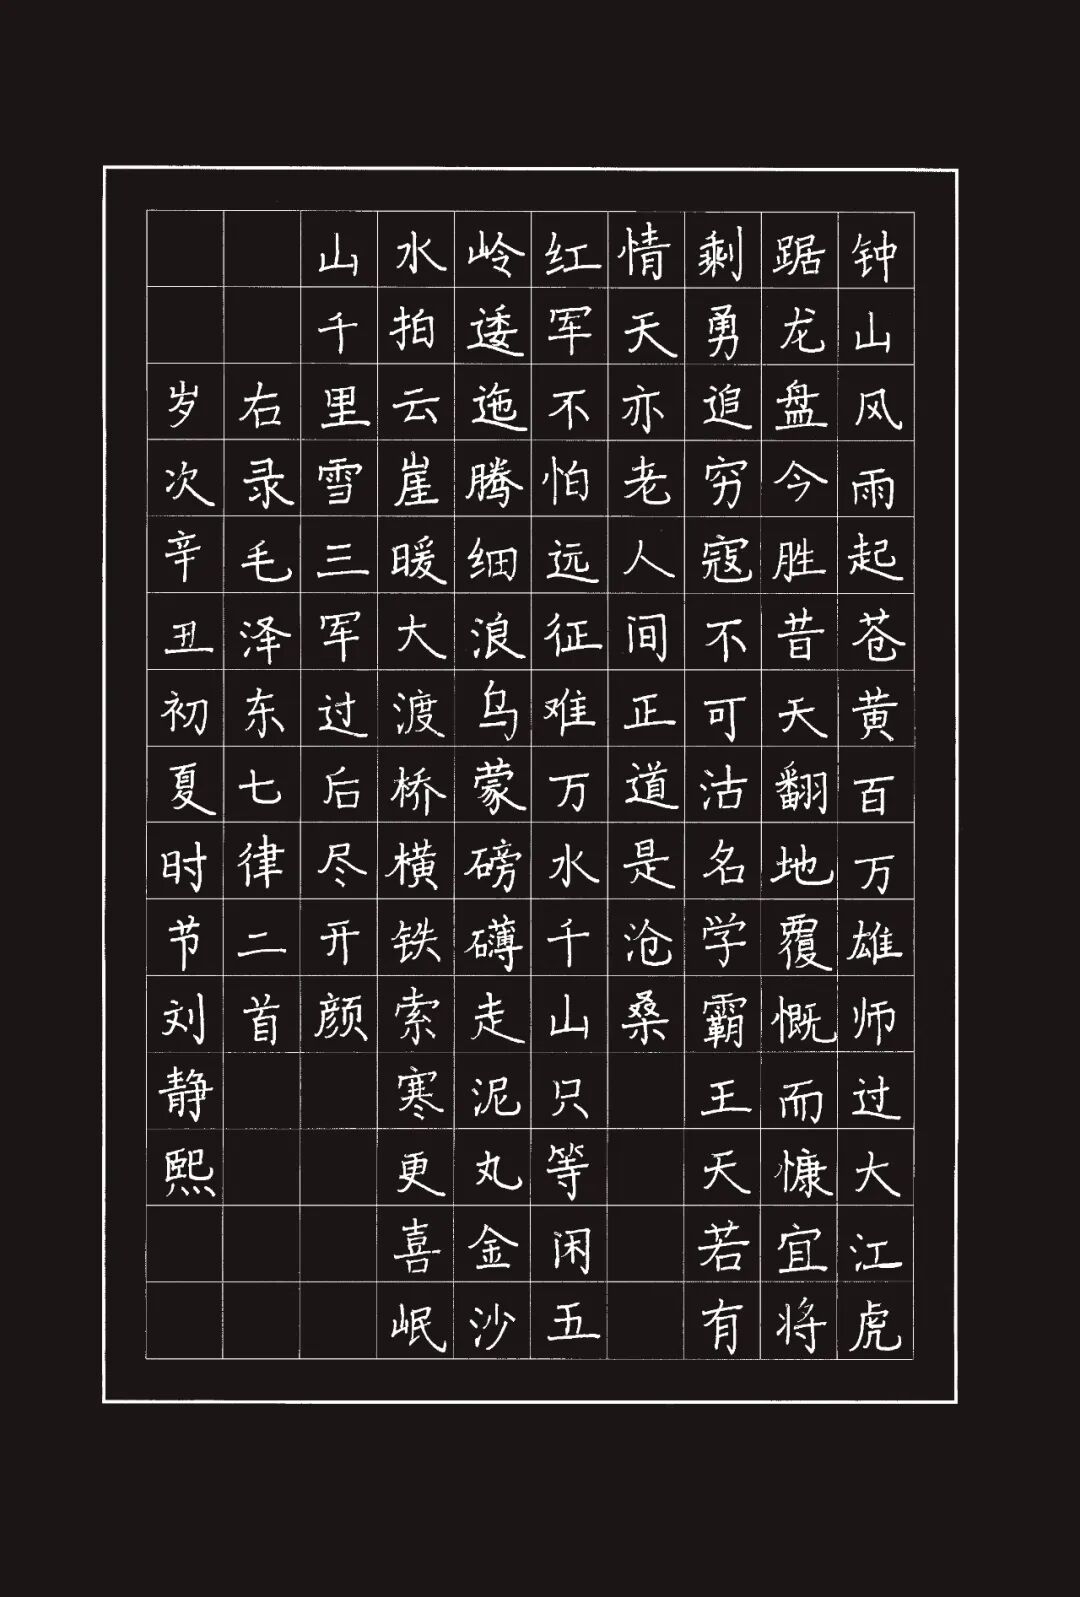 钟山风雨起苍黄百万雄师过大江虎
踞龙盘今胜昔天翻地覆慨而慷宜将
剩勇追穷寇不可沽名学霸王天若有
情天亦老人间正道是沧桑
红军不怕远征难万水千山只等闲五
岭逶迤腾细浪乌蒙磅礴走泥丸金沙
水拍云崖暖大渡桥横铁索寒更喜岷
山千里雪三军过后尽开颜
右录毛泽东七律二首
岁次辛丑初夏时节刘静熙